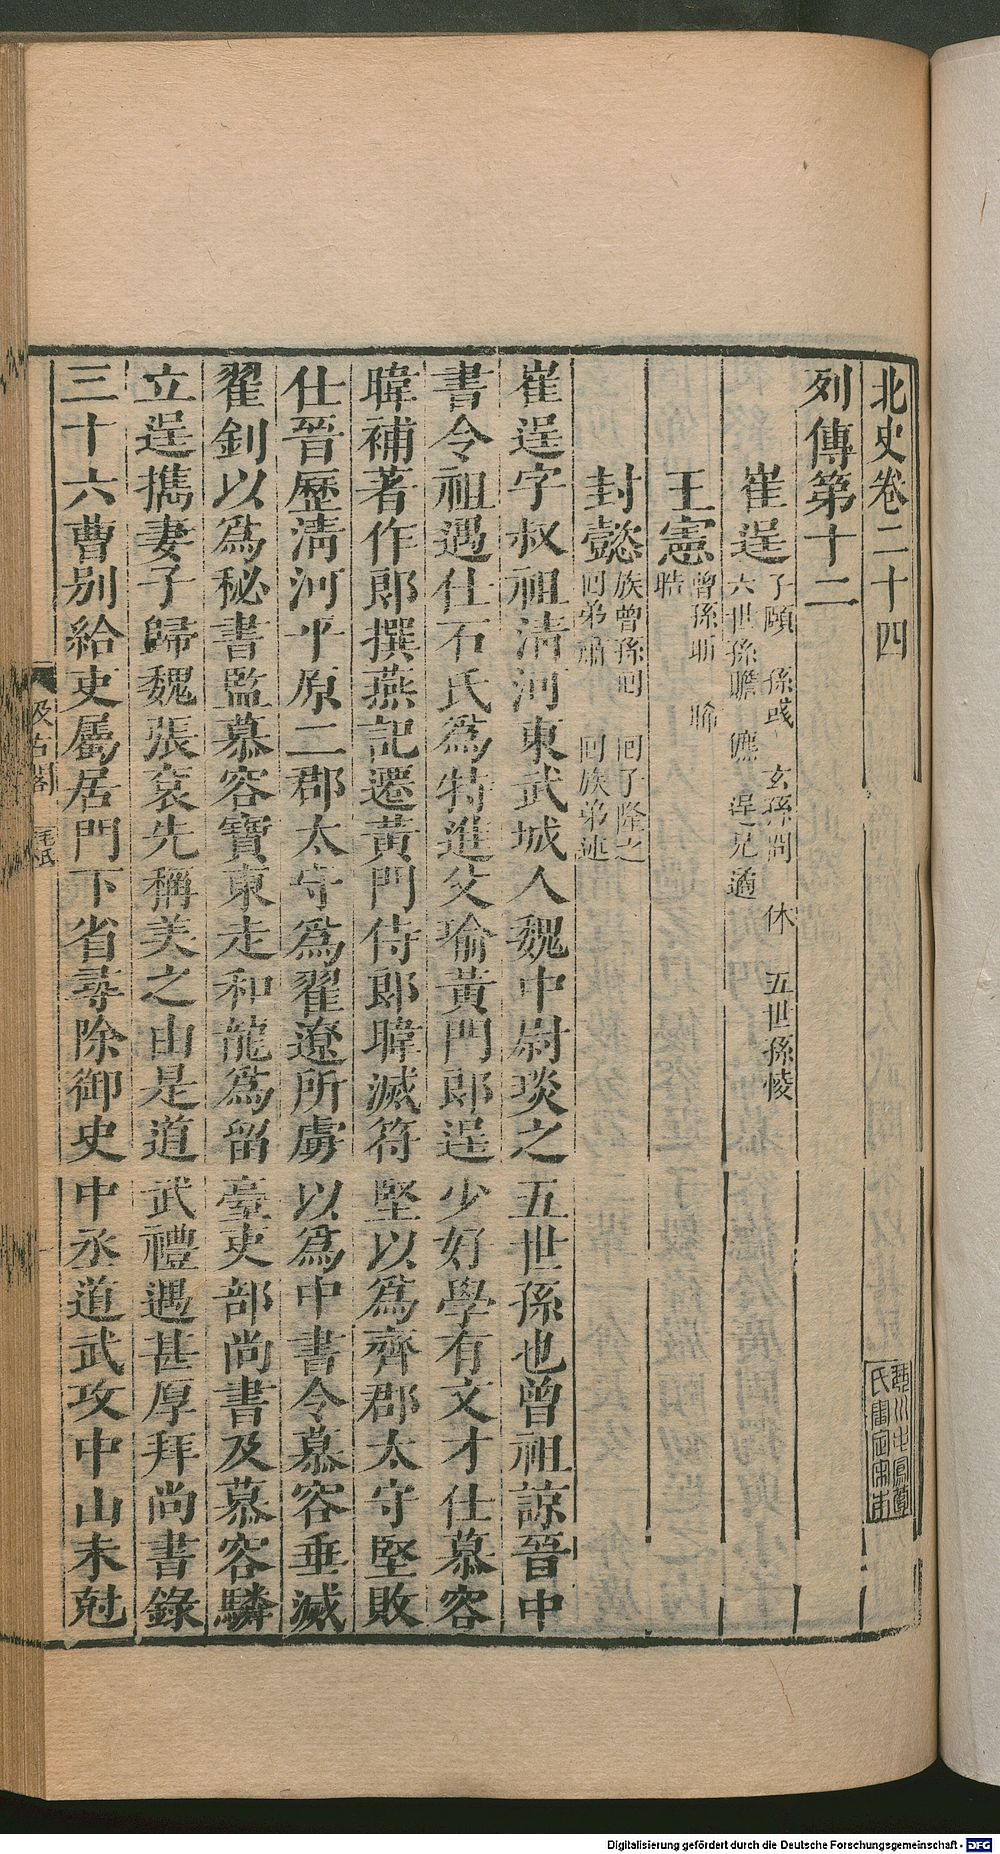 北史卷二十四
列傳第十二
崔逞 子頤 孫彧 玄孫冏 休 五世孫㥄
六世孫瞻 儦 逞兄遹
王憲 曾孫昕 晞
晧
封懿 族曾孫回 回子隆之
回弟肅 回族弟述
崔逞字叔祖清河東武城人魏中尉琰之五世孫也曾祖諒晉中
書令祖遇仕石氏爲特進父瑜黃門郎逞少好學有文才仕慕容
暐補著作郎撰燕記遷黃門侍郎暐滅苻堅以爲齊郡太守堅敗
仕晉歷清河平原二郡太守爲翟遼所虜以爲中書令慕容垂滅
翟釗以爲秘書監慕容寶東走和龍爲留臺吏部尚書及慕容驎
立逞攜妻子歸魏張袞先稱美之由是道武禮遇甚厚拜尚書錄
三十六曹別給吏屬居門下省尋除御史中丞道武攻中山未尅
汲古閣
毛氏
Digitalisierung gefördert durch die Deutsche Forschungsgemeinschaft - DFG